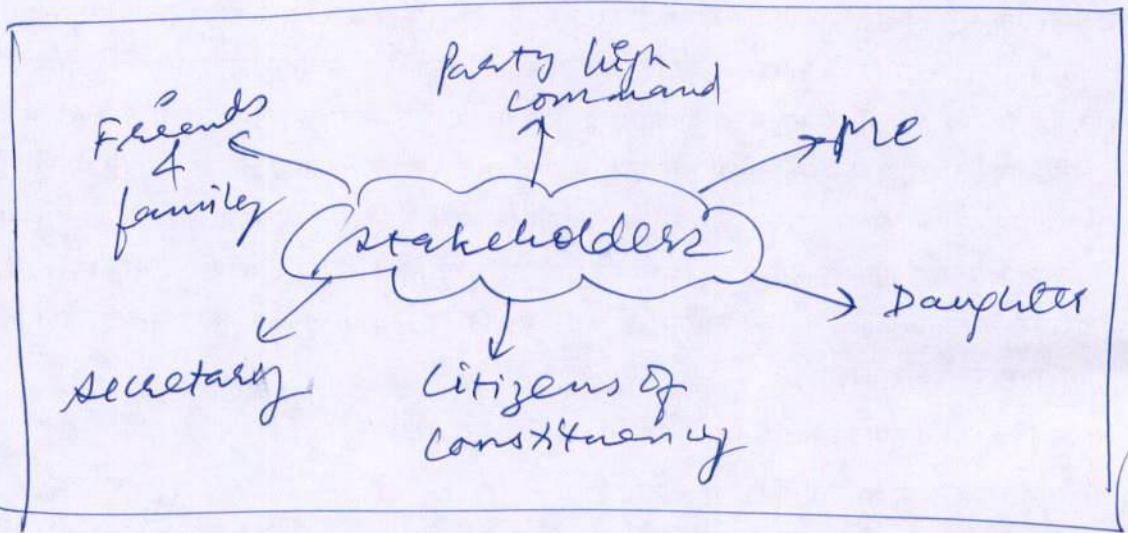 Party high
command
Friends
&
family
Me
stakeholders
Daughter
secretary
Citizens of
constituency